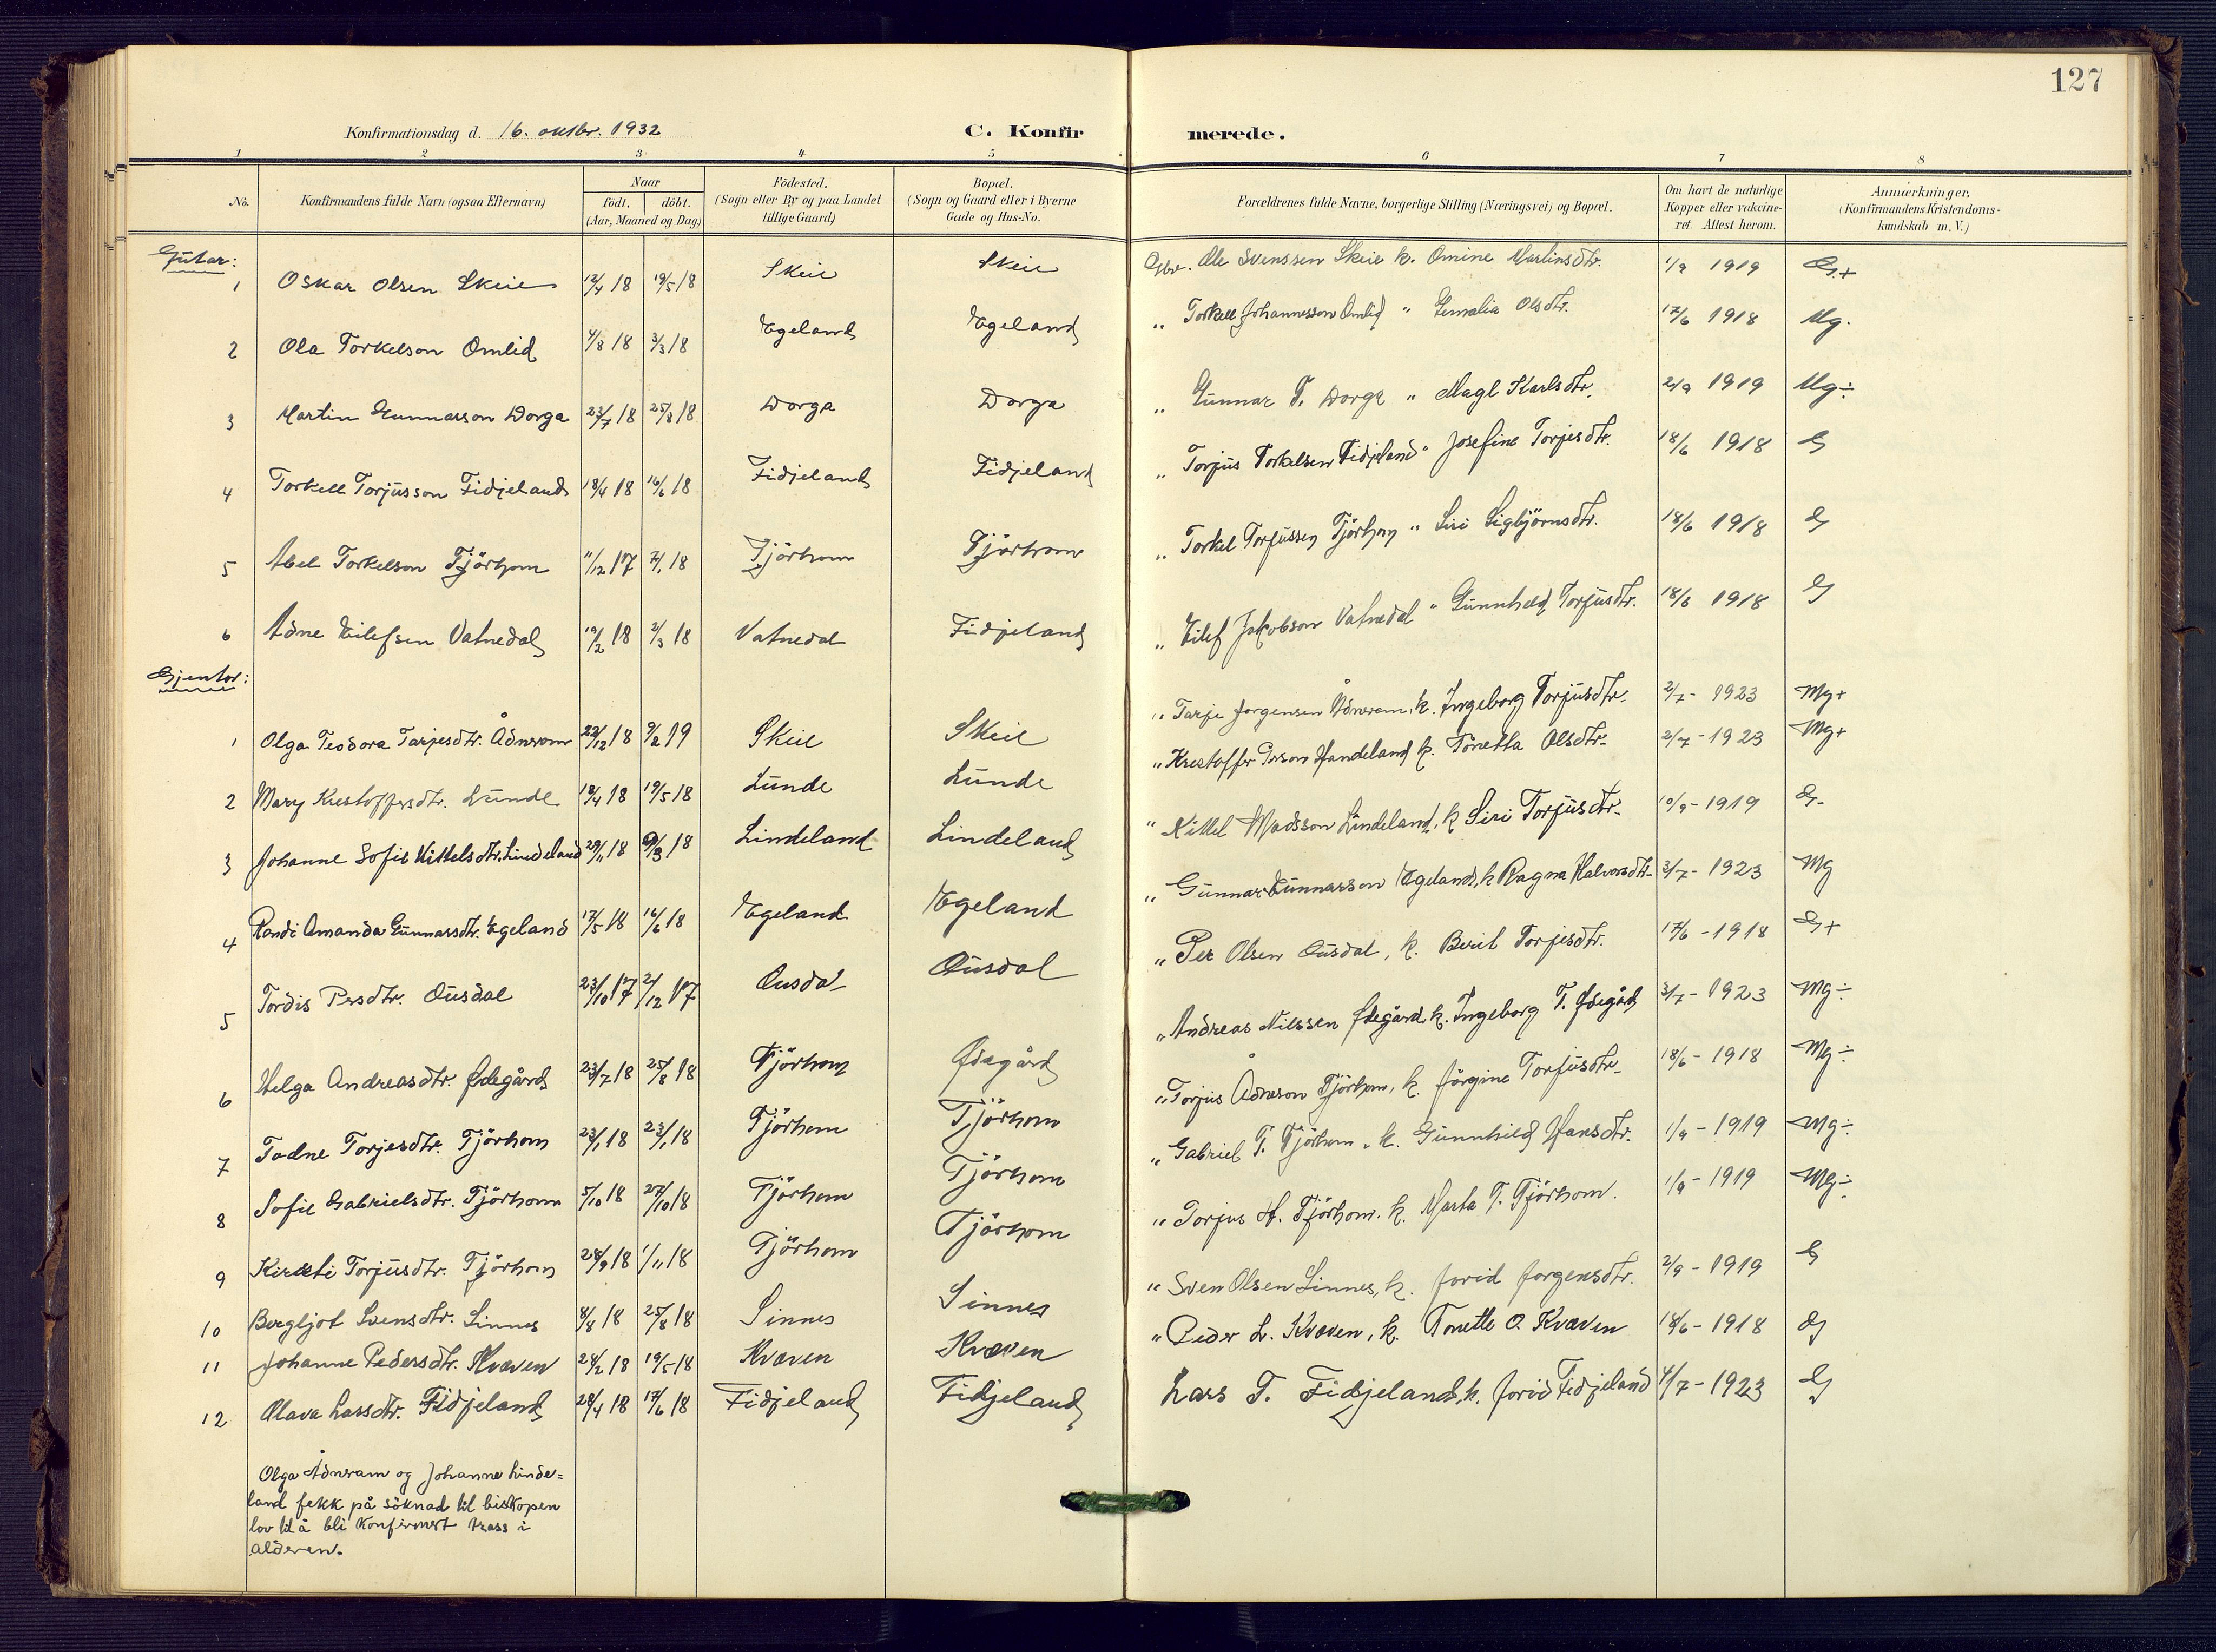 127
Konfirmationsdag d. 16. oktbr. 1932 C. Konfir merede.
1 2 3 4 5 6 7 8
No. Konfirmandens fulde Navn (ogsaa Efternavn) Naar født. døbt. (Aar, Maaned og Dag) Födested. (Sogn eller By og paa Landet tillige Gaard) Bopæl. (Sogn og Gaard eller i Byerne Gade og Hus-No. Forældrenes fulde Navne, borgerlige Stilling (Næringsvei) og Bopæl. Om havt de naturlige Kopper eller vakcineret. Attest herom. Anmærkninger, (Konfirmandens Kristendomskundskab m. V.)
Gutar:
1 Oskar Olsen Skeie 12/4 18 19/5 18 Skeie Skeie Gbr. Ole Svenssen Skeie k. Omine Martinsdtr. 1/9 1919 G.+
2 Ola Torkelson Omlid 4/3 18 Egeland Egeland " Torkell Johannesson Omlid " Olsdtr. 17/6 1918 Mg.
3 Martin Gunnarson Dorga 23/7 18 25/8 18 Dorga Dorga " Gunnar T. Dorga " Magl Karlsdtr. 2/9 1919 Mg÷
4 Torkell Torjusson Fidjeland 18/4 18 16/6 18 Fidjeland Fidjeland " Torjus Torkelsen Fidjeland " Josefine Torjesdtr. 18/6 1918 G
5 Abel Torkelson Tjörhom 11/12 17 2/1 18 Tjörhom Tjörhom " Torkel Torjussen Tjörhom " Siri Sigbjörnsdtr. 18/6 1918 G
6 Ådne Eilefsen Vatnedal 19/2 18 2/3 18 Vatnedal Fidjeland " Eilef Jakobson Vatnedal " Gunnheld Torjusdtr. 18/6 1918 G
Gjentor:
1 Olga Teodora Tarjesdtr. Ådneram 22/12 18 9/2 19 Skeie Skeie " Tarje Jorgensen Ådneram, k. Ingeborg Torjusdtr. 2/7 - 1923 Mg+
2 Mary Krestoffersdtr. Lunde 18/4 18 19/5 18 Lunde Lunde " Krestoffer Handeland k. Tonetta Olsdtr. 2/7 - 1923 Mg+
3 Johanne Sofie Kittelsdtr. Lindeland 29/11 18 18 Lindeland Lindeland " Kittel Madsson Lindeland, k Siri Torjusdtr. 10/9 - 1919 G-
4 Randi Amanda Gunnarsdtr. Egeland 17/5 18 16/6 18 Egeland Egeland " Gunnar Gunnarsson Egeland, k Ragna Halvorsdtr. 3/7 - 1923 Mg
5 Tordis Persdtr. Ousdal 23/10 17 2/12 17 Ousdal Ousdal " Per Olsen Ousdal, k. Berit Torjesdtr. 17/6 - 1918 G+
6 Helga Andreasdtr. Ødegård 23/7 18 25/8 18 Tjörhom Ødegård " Andreas Nilssen Ødegård k. Ingeborg T. Ødegård 3/7 - 1923 Mg÷
7 Todne Torjesdtr. Tjörhom 23/1 18 23/1 18 Tjörhom Tjörhom " Torjus Ådneson Tjörhom, k. Jörgine Torjusdtr. 18/6 - 1918 Mg÷
8 Sofie Gabrielsdtr. Tjörhom 5/10 18 27/10 18 Tjörhom Tjörhom " Gabriel T. Tjörhom, k. Gunnhild Hansdtr. 1/9 - 1919 Mg÷
9 Kirsti Torjusdtr. Tjörhom 28/9 18 1/11 18 Tjörhom Tjörhom " Torjus H. Tjörhom. k. Marta T. Tjörhom. 1/9 - 1919 Mg÷
10 Bergljot Svensdtr. Sinnes 8/8 18 25/8 18 Sinnes Sinnes " Sven Olsen Sinnes, k. Jorid Jorgensdtr. 2/9 - 1919 G
11 Johanne Pedersdtr. Kvæven 24/2 18 19/5 18 Kvæven Kvæven " Peder L. Kvæven, k. Tonette O. Kvæven 18/6 - 1918 G
12 Olava Larsdtr. Fidjeland 28/4 18 17/6 18 Fidjeland Fidjeland Lars T. Fidjeland, k. Jorid Fidjeland 4/7 - 1923 G
Olga Ådneram og Johanne Linde=
land fekk på söknad til biskopen
lov til å bli konfirmert trass i
alderen.